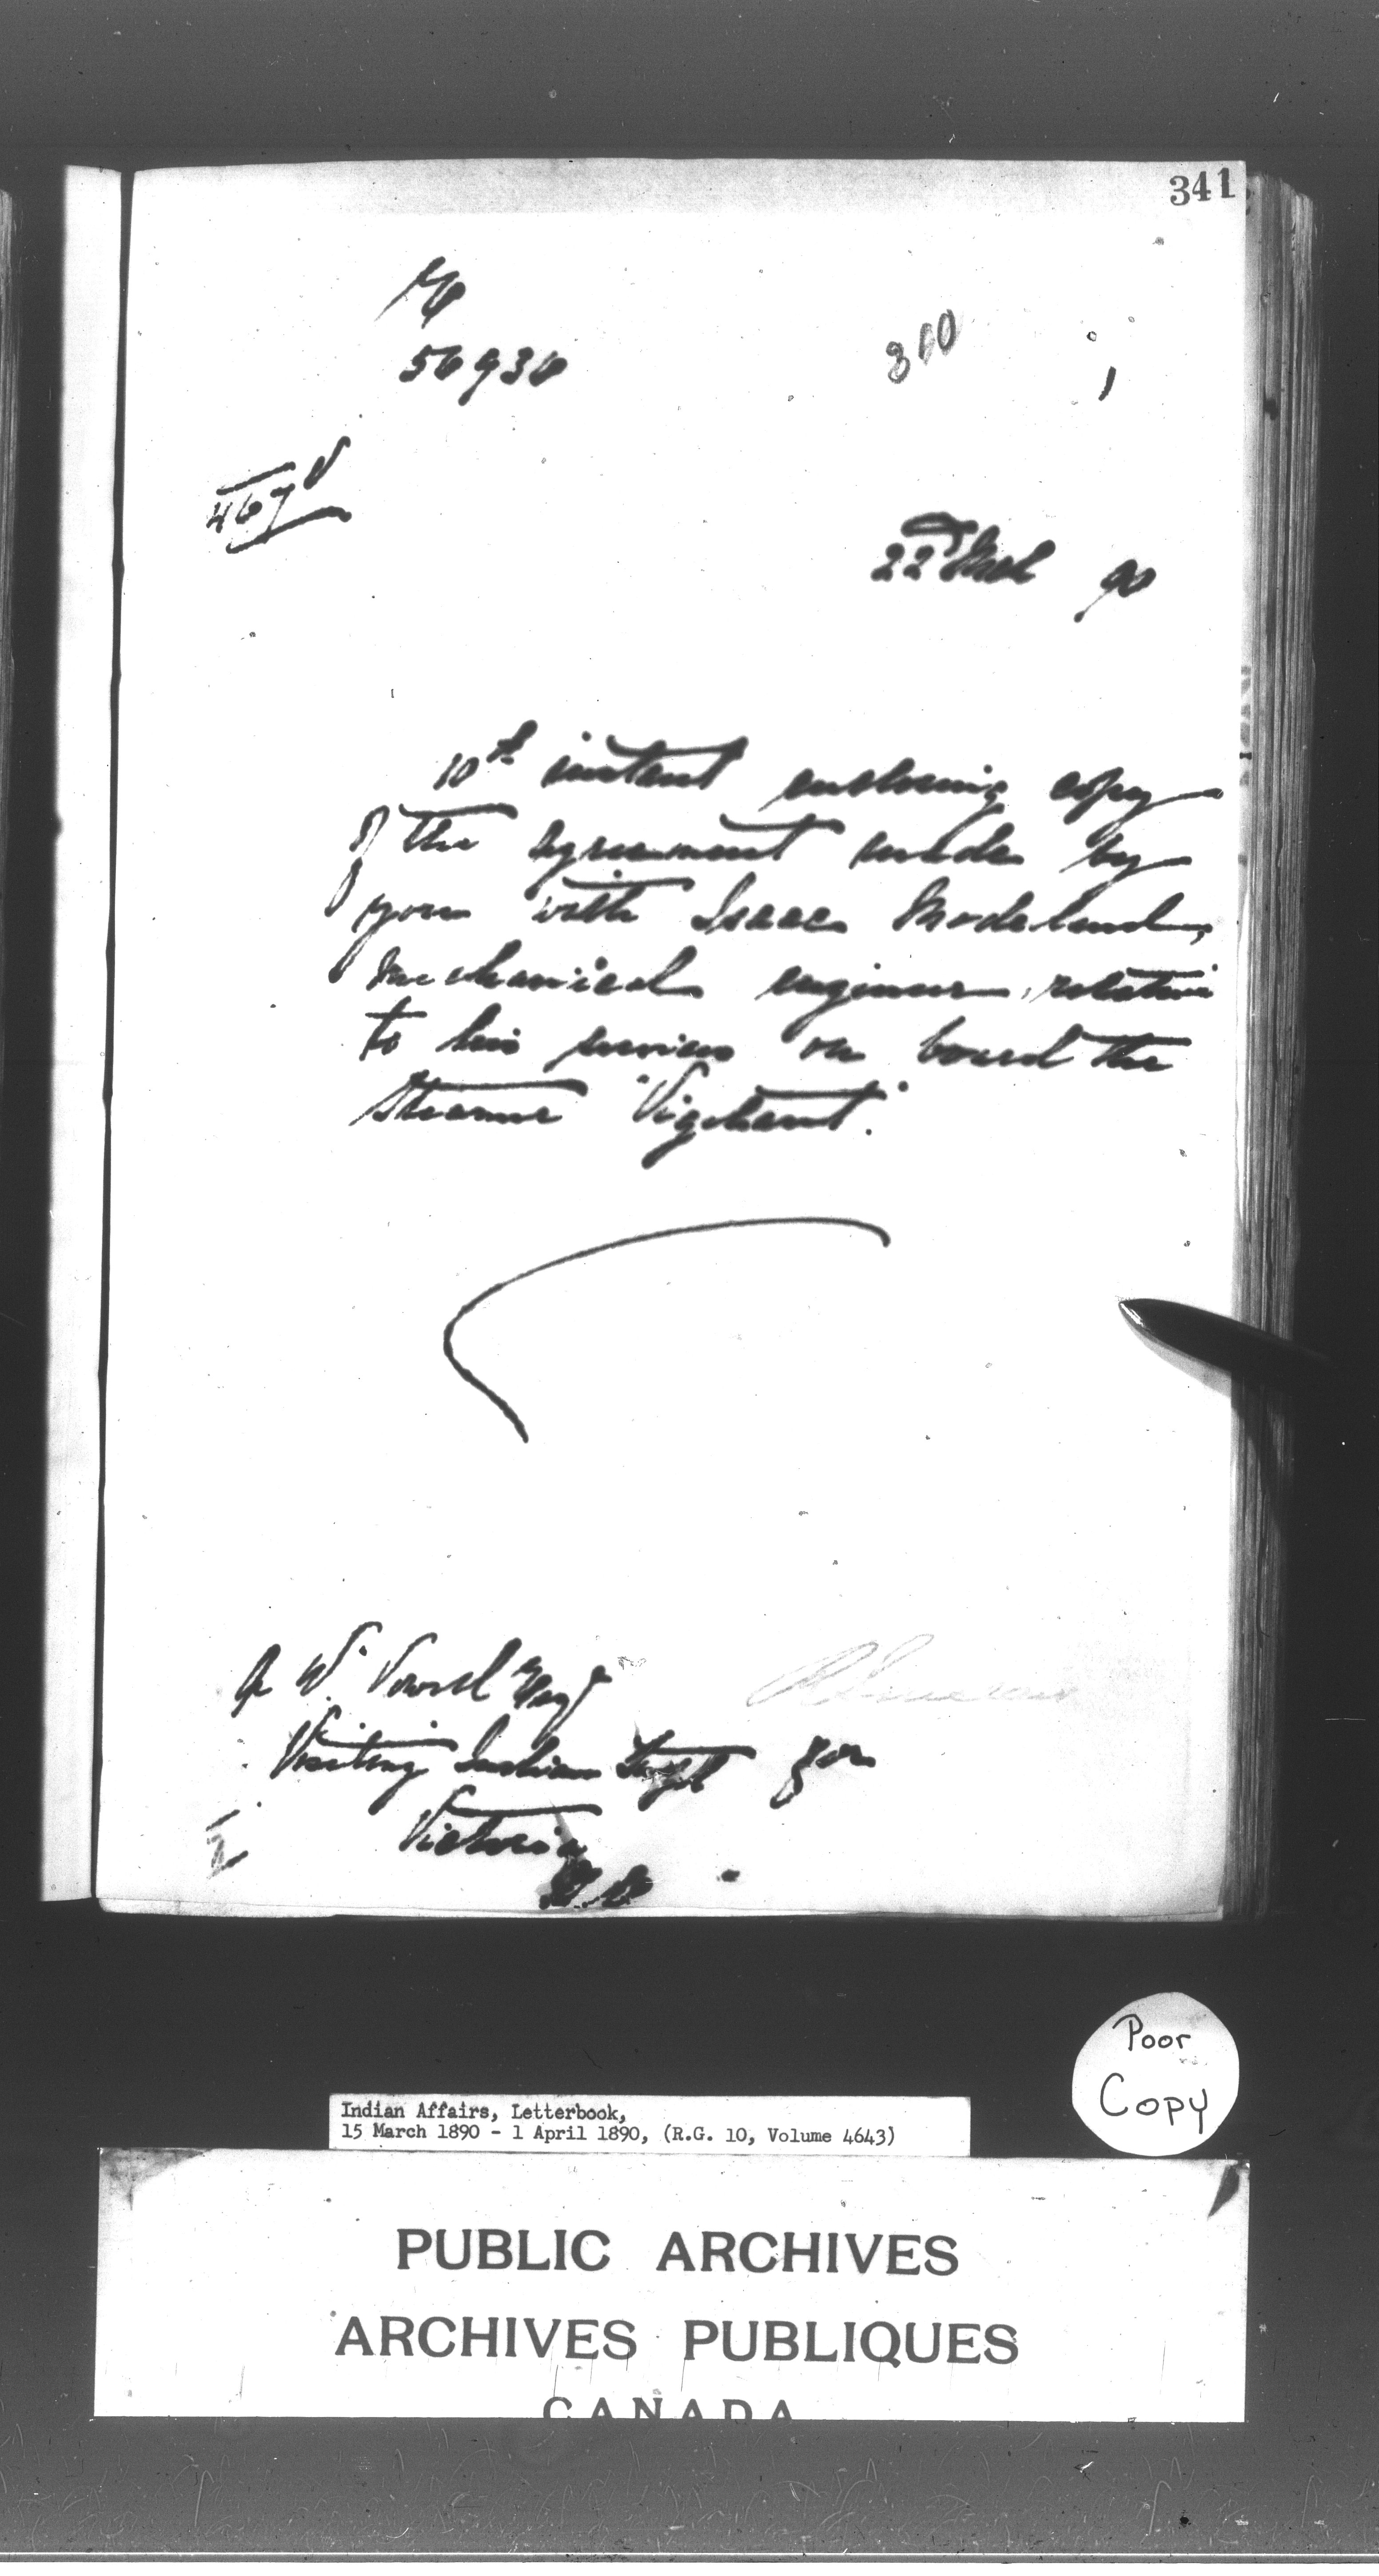 341
56936
310
467 V
22nd Mch 90
10th instant enclosing copy
of the agreement made by
you with Isaac Modeland,
Mechanical engineer, relative
to his services on board the
Steamer "Vigilant".
A W. Vowell Esqr
Visiting Indian Supt
Victoria
B. C.
Poor
Copy
Indian Affairs, Letterbook,
15 March 1890 - 1 April 1890, (R.G. 10, Volume 4643)
PUBLIC ARCHIVES
ARCHIVES PUBLIQUES
CANADA